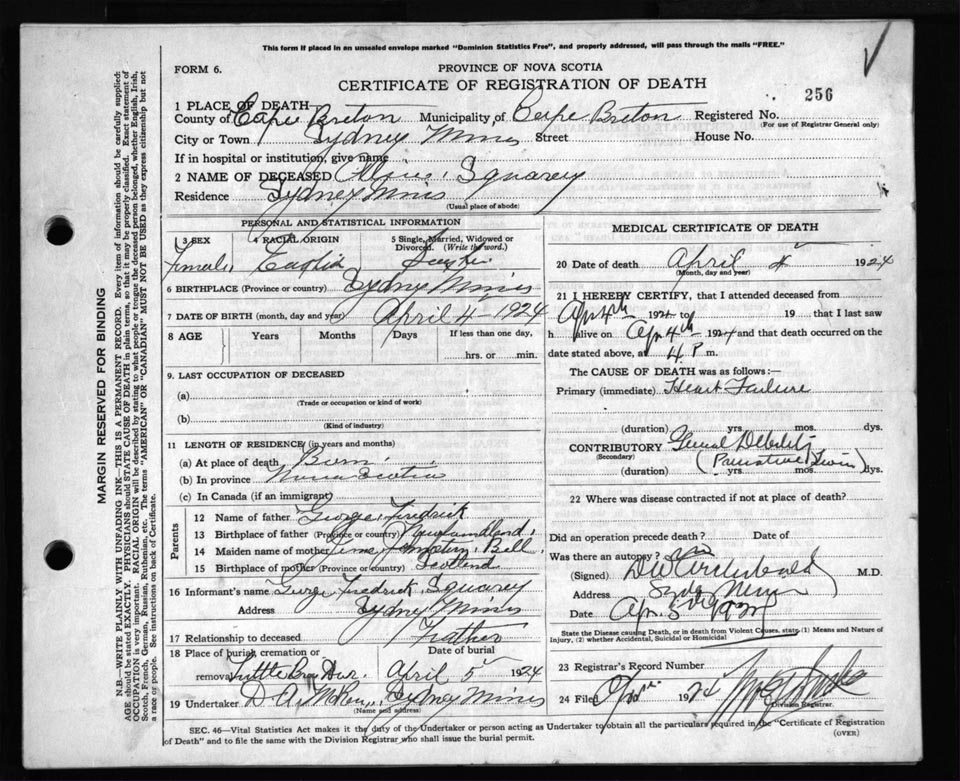 This form if placed in an unsealed envelope marked "Dominion Statistics Free", and properly addressed, will pass through the mails "FREE."
FORM 6.
PROVINCE OF NOVA SCOTIA
CERTIFICATE OF REGISTRATION OF DEATH
256
1 PLACE OF DEATH
County of Cape Breton Municipality of Cape Breton Registered No.
(For use of Registrar General only)
City or Town Sydney Mines Street House No.
If in hospital or institution, give name
2 NAME OF DECEASED Squarey
Residence Sydney Mines
(Usual place of abode)
PERSONAL AND STATISTICAL INFORMATION
3 SEX 4 RACIAL ORIGIN 5 Single, Married, Widowed or Divorced. (Write the word.)
Female English
6 BIRTHPLACE (Province or country) Sydney Mines
7 DATE OF BIRTH (month, day and year) April 4 - 1924
8 AGE Years Months Days If less than one day,
hrs. or min.
9. LAST OCCUPATION OF DECEASED
(a)
(Trade or occupation or kind of work)
(b)
(Kind of industry)
11 LENGTH OF RESIDENCE (in years and months)
(a) At place of death Born
(b) In province Nova Scotia
(c) In Canada (if an immigrant)
Parents
12 Name of father George Fredrick
13 Birthplace of father (Province or country) Newfoundland
14 Maiden name of mother Bell
15 Birthplace of mother (Province or country) Scotland
16 Informant's name George Fredrick Squarey
Address Sydney Mines
17 Relationship to deceased Father
18 Place of burial, cremation or removal Date of burial
Little Bras Dor April 5 1924
19 Undertaker Sydney Mines
(Name and address)
MEDICAL CERTIFICATE OF DEATH
20 Date of death April 4 1924
(Month, day and year)
21 I HEREBY CERTIFY, that I attended deceased from
Apr 4th 192 to 19 that I last saw
h alive on Apr 4th 1924 and that death occurred on
date stated above, at 4 P. m.
The CAUSE OF DEATH was as follows:—
Primary (immediate) Heart Failure
(duration) yrs. mos. dys.
CONTRIBUTORY General Debility
(Secondary) (Premature Twin)
(duration) yrs. mos. dys.
22 Where was disease contracted if not at place of death?
Did an operation precede death? Date of
Was there an autopsy? No
(Signed) D W Archibald M.D.
Address Sydney Mines
Date Apr. 5th 1924
State the Disease causing Death, or in death from Violent Causes, state (1) Means and Nature of Injury, (2) whether Accidental, Suicidal or Homicidal
23 Registrar's Record Number
24 Filed 1924
Division Registrar.
SEC. 46—Vital Statistics Act makes it the duty of the Undertaker or person acting as Undertaker to obtain all the particulars required in the "Certificate of Registration
of Death" and to file the same with the Division Registrar who shall issue the burial permit.
(OVER)
MARGIN RESERVED FOR BINDING
N.B.—WRITE PLAINLY WITH UNFADING INK—THIS IS A PERMANENT RECORD. Every item of information should be carefully supplied:
AGE should be stated EXACTLY. PHYSICIANS should STATE CAUSE OF DEATH in plain terms, so that it may be properly classified. Exact statement of
OCCUPATION is very important. RACIAL ORIGIN will be described by stating to what people or tongue the deceased person belonged, whether English, Irish,
Scotch, French, German, Russian, Ruthenian, etc. The terms "AMERICAN" OR "CANADIAN" MUST NOT BE USED as they express citizenship but not
a race or people. See instructions on back of Certificate.